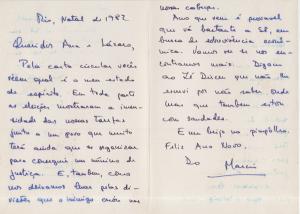 Rio, Natal de 1982
Queridos Ana e Lázaro,
Pela carta circular vocês
vêem qual é o meu estado
de espírito. Em toda parte
as eleições mostraram a imen-
sidade das nossas tarefas
junto a um povo que muito
terá ainda que se organizar
para conseguir um mínimo de
justiça. E, também, como
nos deixamos levar pelas di-
visões que o inimigo criou em
nossa cabeça.
Ano que vem é provável
que vá bastante a SP, em
busca de sobrevivência econô-
mica. Vamos ver se nos en-
contramos mais. Digam
ao Zé Dirceu que não lhe
escrevi por não saber onde
mas que também estou
com saudades.
E um beijo no pimpolho.
Feliz Ano Novo.
Do